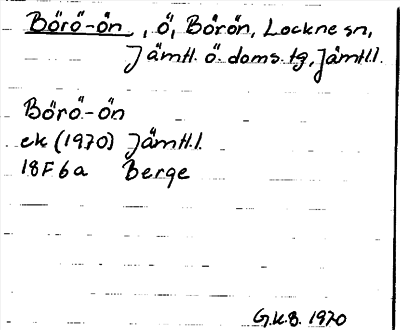 Börö-ön, ö, Börön, Lockne sn,
Jämtl. ö. doms. tg, Jämtl.l.
Börö-ön
ek (1970) Jämtl.l.
18F6a Berge
G.K.B. 1970